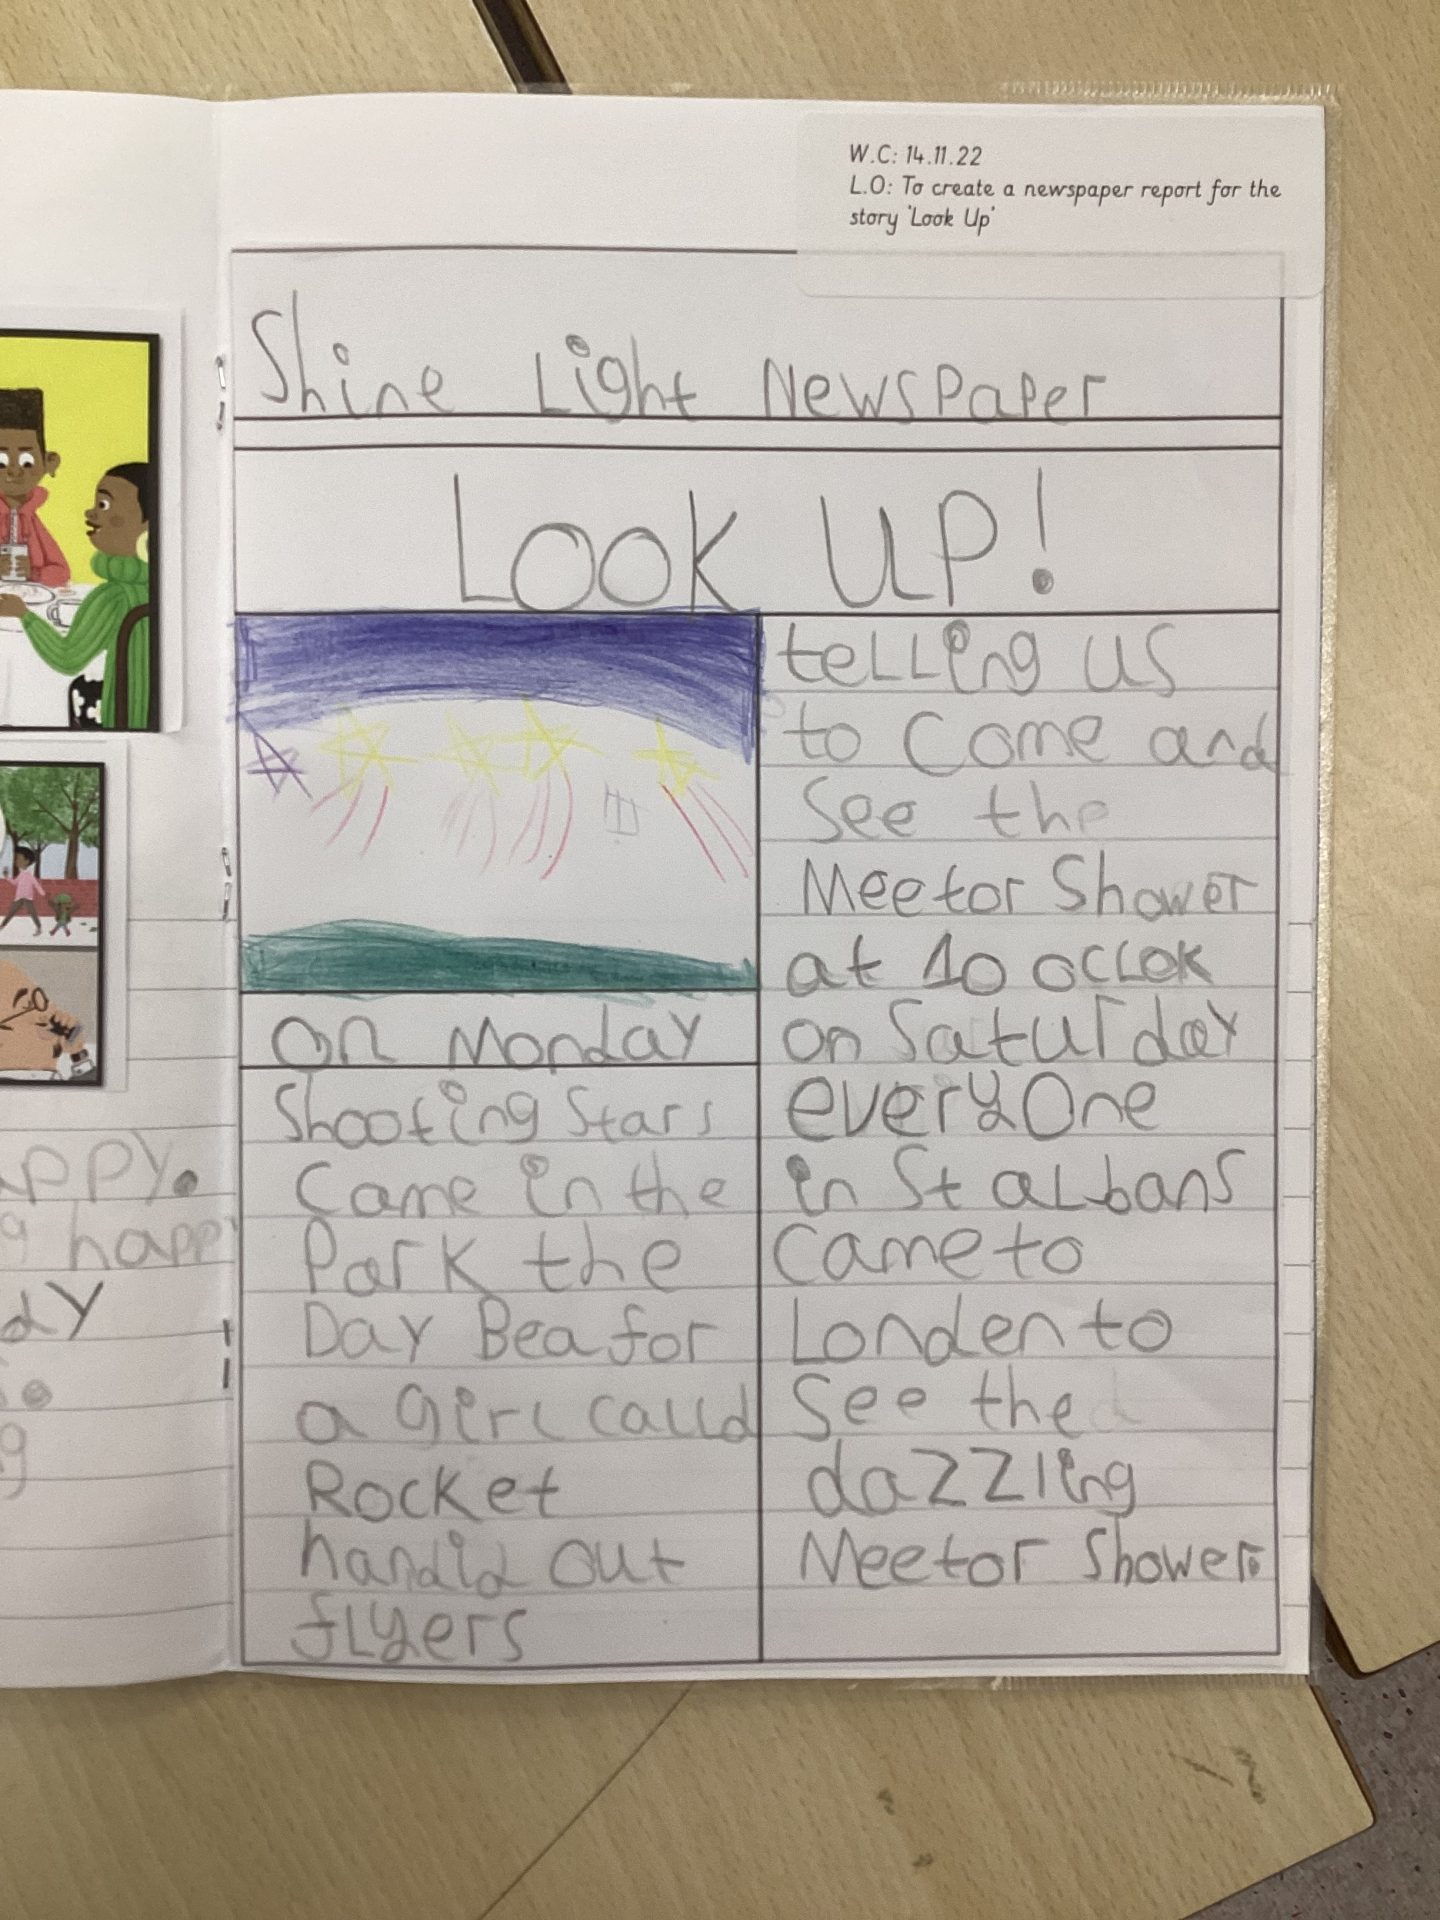 appy.
g happ
dy
g
W.C: 14.11.22
L.O: To create a newspaper report for the
story 'Look Up'
Shine Light Newspaper
Look UP!
on Monday
Shooting Stars
Came in the
Park the
Day Beafor
a Girl calld
Rocket
handid out
flyers
telling us
to Come and
See the
Meetor Shower
at 10 oclok
on Saturday
everyone
in St albans
Came to
Londen to
See the
dazzling
Meetor Shower.